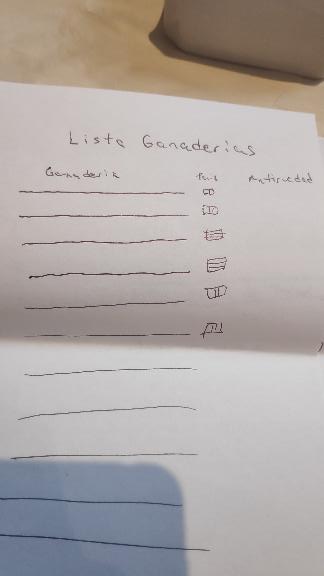 Lista Ganaderias
Ganaderia País Antiguedad